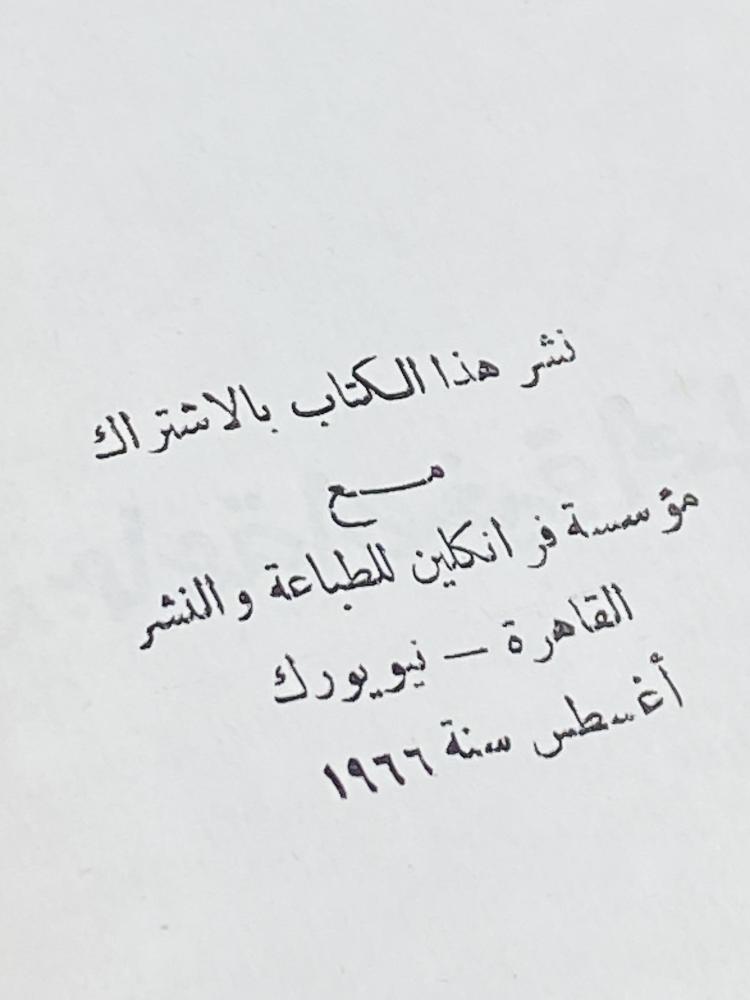 نشر هذا الكتاب بالاشتراك
مـــع
مؤسسة فرانكلين للطباعة والنشر
القاهرة – نيويورك
أغسطس سنة ١٩٦٦